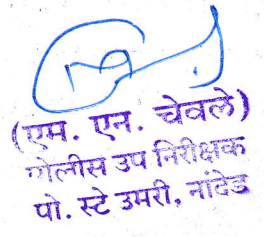 (एम. एन. चेवले)
पोलीस उप निरीक्षक
पो. स्टे उमरी, नांदेड